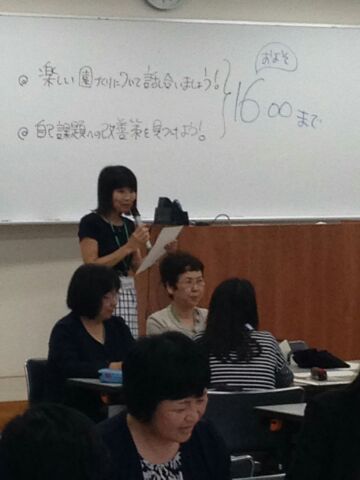 ◎ 楽しい園づくりについて話し合いましょう!
◎ 自己課題への改善策を見つけよう!
およそ
16:00まで